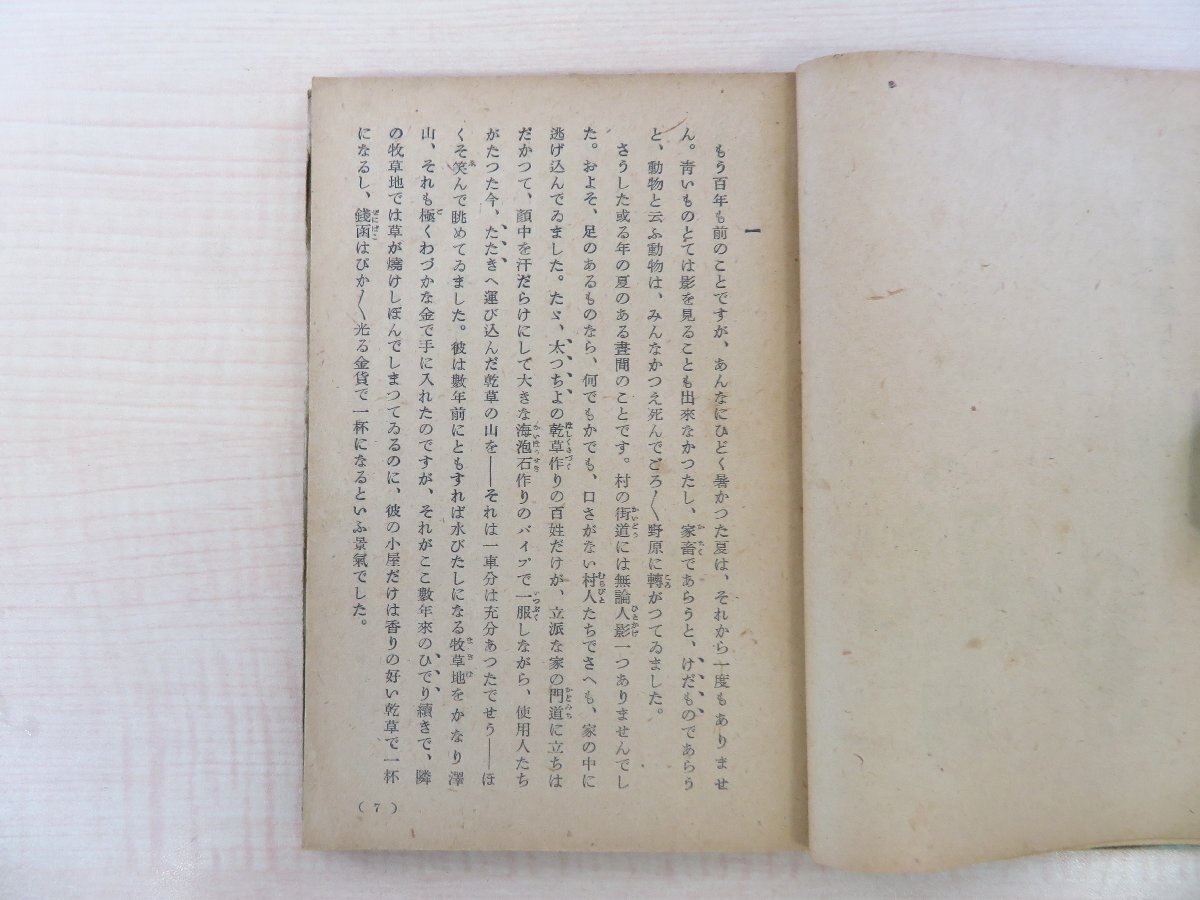 一
もう百年も前のことですが、あんなにひどく暑かつた夏は、それから一度もありませ
ん。青いものとては影を見ることも出來なかつたし、家畜であらうと、けだものであらう
と、動物と云ふ動物は、みんなかつえ死んでごろ〳〵野原に轉がつてゐました。
さうした或る年の夏のある晝間のことです。村の街道には無論人影一つありませんでし
た。およそ、足のあるものなら、何でもかでも、口さがない村人たちでさへも、家の中に
逃げ込んでゐました。たゞ、太つちよの乾草作りの百姓だけが、立派な家の門道に立ちは
だかつて、顔中を汗だらけにして大きな海泡石作りのパイプで一服しながら、使用人たち
がたつた今、たたきへ運び込んだ乾草の山を――それは一車分は充分あつたでせう――ほ
くそ笑んで眺めてゐました。彼は數年前にともすれば水びたしになる牧草地をかなり澤
山、それも極くわづかな金で手に入れたのですが、それがここ數年來のひでり續きで、隣
の牧草地では草が燒けしぼんでしまつてゐるのに、彼の小屋だけは香りの好い乾草で一杯
になるし、錢函はぴか〳〵光る金貨で一杯になるといふ景氣でした。
(7)